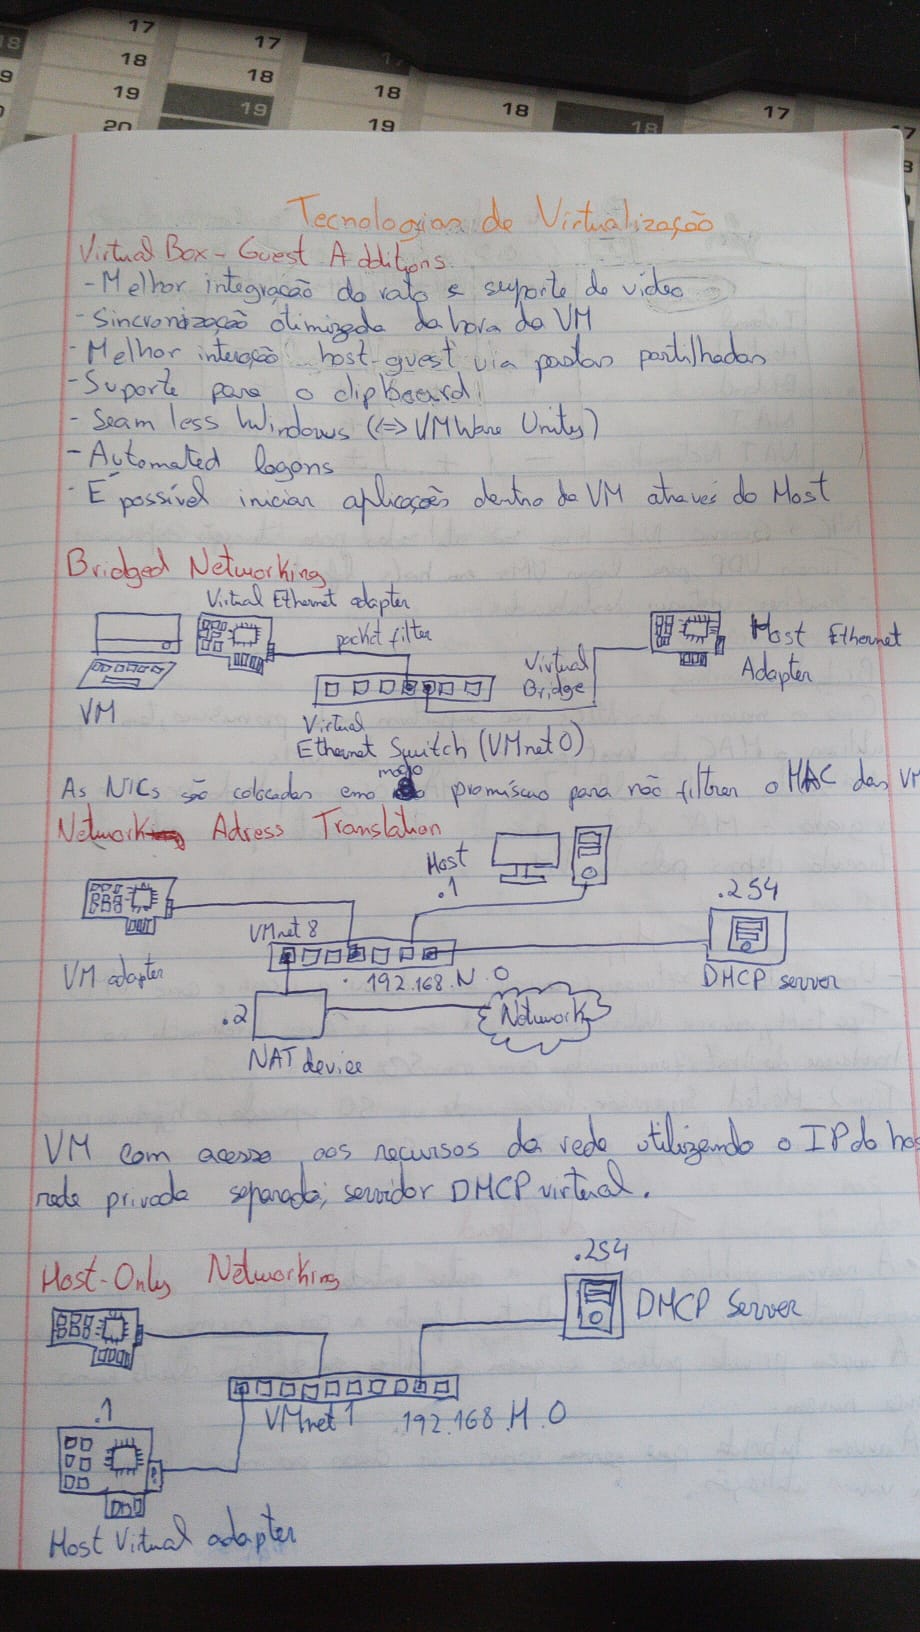 17
17
17
18
18
18
18
19
19
19
20
18
18
17
19
17
Tecnologias de Virtualização
Virtual Box - Guest Additions
- Melhor integração do rato e suporte de vídeo
- Sincronização otimizada da hora da VM
- Melhor interação host-guest via pastas partilhadas
- Suporte para o clipboard
- Seamless Windows (<=> VMWare Unity)
- Automated logons
- É possível iniciar aplicações dentro da VM através do Host
Bridged Networking
Virtual Ethernet adapter
packet filter
VM
Virtual
Bridge
Host Ethernet
Adapter
Virtual
Ethernet Switch (VMnet0)
As NICs são colocadas em modo promíscuo para não filtrar o MAC das VM
Network Adress Translation
Host
.1
.254
VMnet 8
VM adapter
192.168.N.0
DHCP server
.2
Network
NAT device
VM com acesso aos recursos da rede utilizando o IP do hos
rede privada separada; servidor DHCP virtual.
Host-Only Networking
.254
DHCP Server
VMnet 1
192.168.H.0
.1
Host Virtual adapter